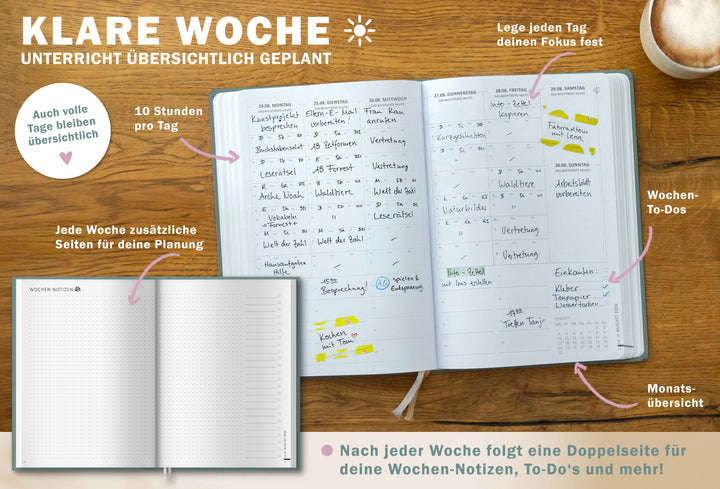 KLARE WOCHE
UNTERRICHT ÜBERSICHTLICH GEPLANT
Auch volle
Tage bleiben
übersichtlich
10 Stunden
pro Tag
Lege jeden Tag
deinen Fokus fest
Jede Woche zusätzliche
Seiten für deine Planung
Wochen-
To-Dos
Monats-
übersicht
24.08. MONTAG
Kunstprojekt
besprechen
Buchstabensalat
Leserätsel
Arche Noah
Vokabeln
Welt der Zahl
Hausaufgaben
Hilfe
25.08. DIENSTAG
Eltern-E-Mail
vorbereiten
AB Zeitformen
AB Forrest
Waldtiere
Welt der Zahl
15:00
Besprechung!
Kochen
mit Tom
26.08. MITTWOCH
Frau Kau
anrufen
Vertretung
Vertretung
Welt der Zahl
Leserätsel
AG Spielen &
Entspannung
27.08. DONNERSTAG
Kurzgeschichten
Naturbilder
Info-Zettel
28.08. FREITAG
Info-Zettel
kopieren
Waldtiere
Vertretung
Vertretung
17:00
Treffen Tanja
29.08. SAMSTAG
Fahrradtour
mit Lena
30.08. SONNTAG
Arbeitsblatt
vorbereiten
Einkaufen:
Kleber
Tonpapier
Wasserfarben
AUGUST 2026
WOCHEN-NOTIZEN
Nach jeder Woche folgt eine Doppelseite für
deine Wochen-Notizen, To-Do‘s und mehr!